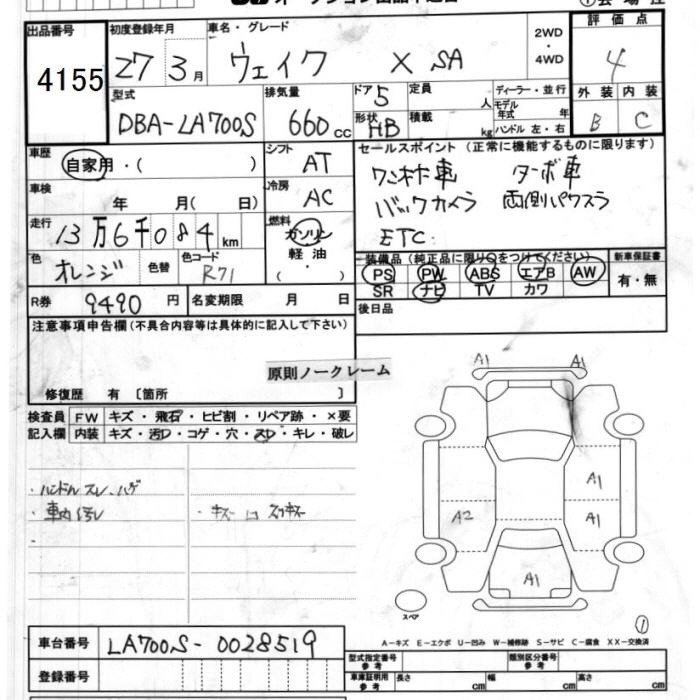 出品番号
4155
初度登録年月
27 3月
車名・グレード
ウェイク X SA
2WD
・
4WD
評価点
4
型式
DBA-LA700S
排気量
660cc
ドア 5
形状 HB
定員 人
積載 kg
ディーラー・並行
モデル年式 年
ハンドル 左・右
外装 内装
B C
車歴
自家用・( )
シフト
AT
車検
年 月( 日)
冷房
AC
走行
13万6千084km
燃料
ガソリン
軽油
・( )
色
オレンジ
色替
色コード
R71
R券 9490円
名変期限 月 日
セールスポイント (正常に機能するものに限ります)
ワンオナ車 ターボ車
バックカメラ 両側パワスラ
ETC
装備品 (純正品に限り○をつけてください)
PS PW ABS エアB AW
SR ナビ TV カワ
新車保証書
有・無
後日品
注意事項申告欄(不具合内容等は具体的に記入して下さい)
原則ノークレーム
修復歴 有 〔箇所 〕
検査員 FW キズ・飛石・ヒビ割・リペア跡・×要
記入欄 内装 キズ・汚れ・コゲ・穴・スレ・キレ・破レ
・ハンドルスレ、ハゲ
・車内汚レ
・キズ
A1 A1
A1
A2 A1
A1
スペア
1
A－キズ E－エクボ U－凹み W－補修跡 S－サビ C－腐食 XX－交換済
車台番号 LA700S-0028519
登録番号
型式指定番号 参考
類別区分番号 参考
車庫証明用 参考
長さ cm 幅 cm 高さ cm